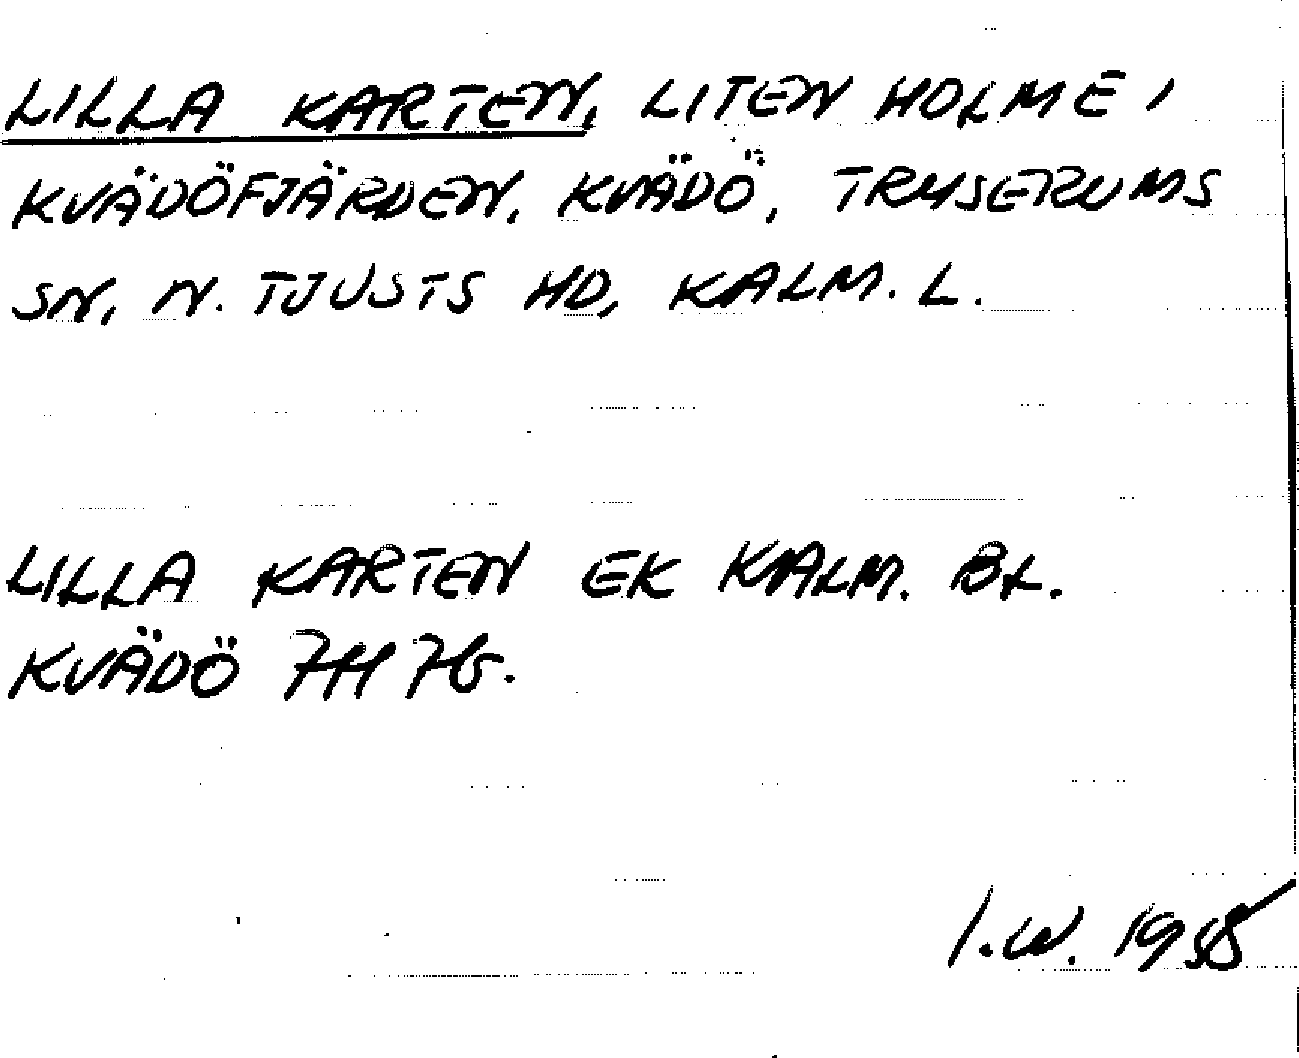 LILLA KARTEN, LITEN HOLME I
KVÄDÖFJÄRDEN, KVÄDÖ, TRYSERUMS
SN, N. TJUSTS HD, KALM. L.
LILLA KARTEN EK KALM. BL.
KVÄDÖ 7H 7G.
I.W. 1938